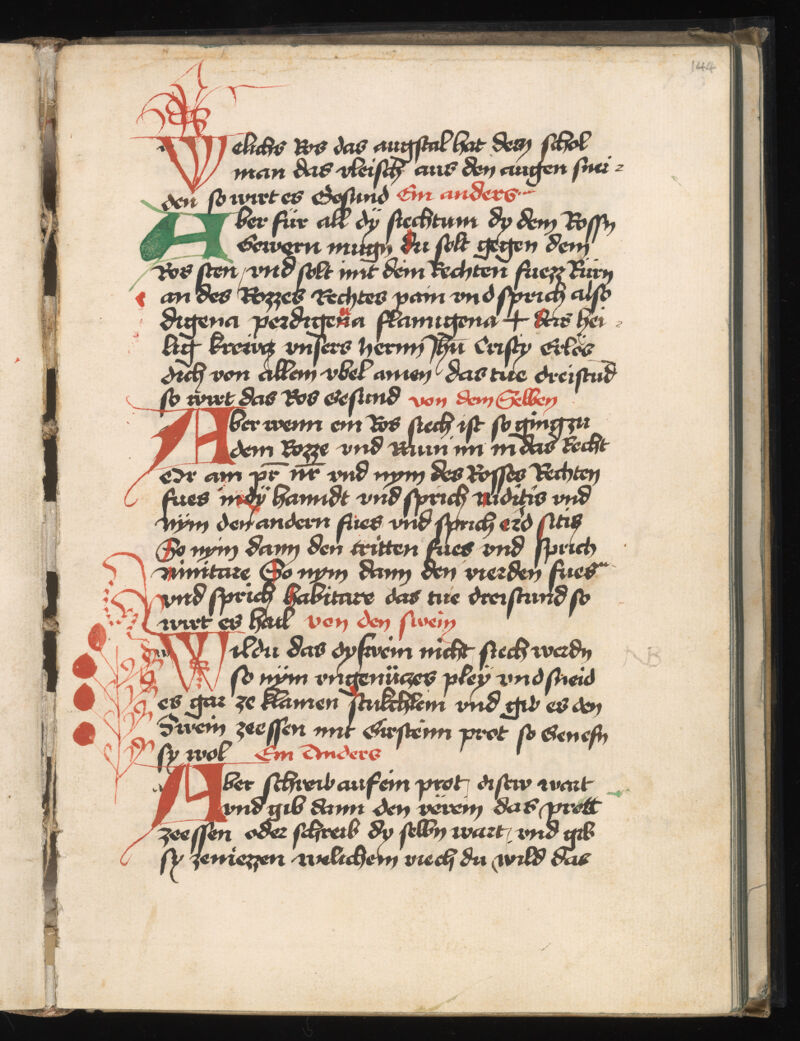 144
Welichs Ros das augstal hat dem schol
man das vleisch aus den augen snei⸗
den so wirt es Gesund Ein anders
Aber für all dÿ siechtum dy dem Rossn
Gewern mugn du solt gegen dem
Ros sten vnd solt mit dem Rechten fuezz Rürn
an des Rozzes Rechtes pain vnd sprich also
digena perdigena flamigena + das hei⸗
lig kreiwcz vnsers herrnn Jhū Cristy Erlös
dich von allem vbel amen das tue dreistūd
so wirt das Ros Gesund von dem Selben
Aber wenn ein Ros siech ist so ging zu
dem Rozze vnd Raun im in das Recht
Or ain pr̄ nr̄ vnd nym des Rosses Rechten
fues in dÿ hanndt vnd sprich viditis vnd
nÿm den andern fues vnd sprich erd sitis
So nÿm dann den dritten fues vnd sprich
ninitare So nym dann den vierden fues
vnd sprich habitare das tue dreistund so
wirt es hail von den swein
Wildu das dy swein nicht siech werdn
so nÿm vngenüczes pleÿ vnd sneid
es gar ze klainen stukchlein vnd gib es den
Swein zeessen mit Girsteinn prot so Genesn
sy wol Ein Anders
NB
Aber schreib auf ein prot disew wart
vnd gib dann den verein das prott
zeessen oder schreib dy selbn wart vnd gib
sy zeniezzen welichem viech du wild das